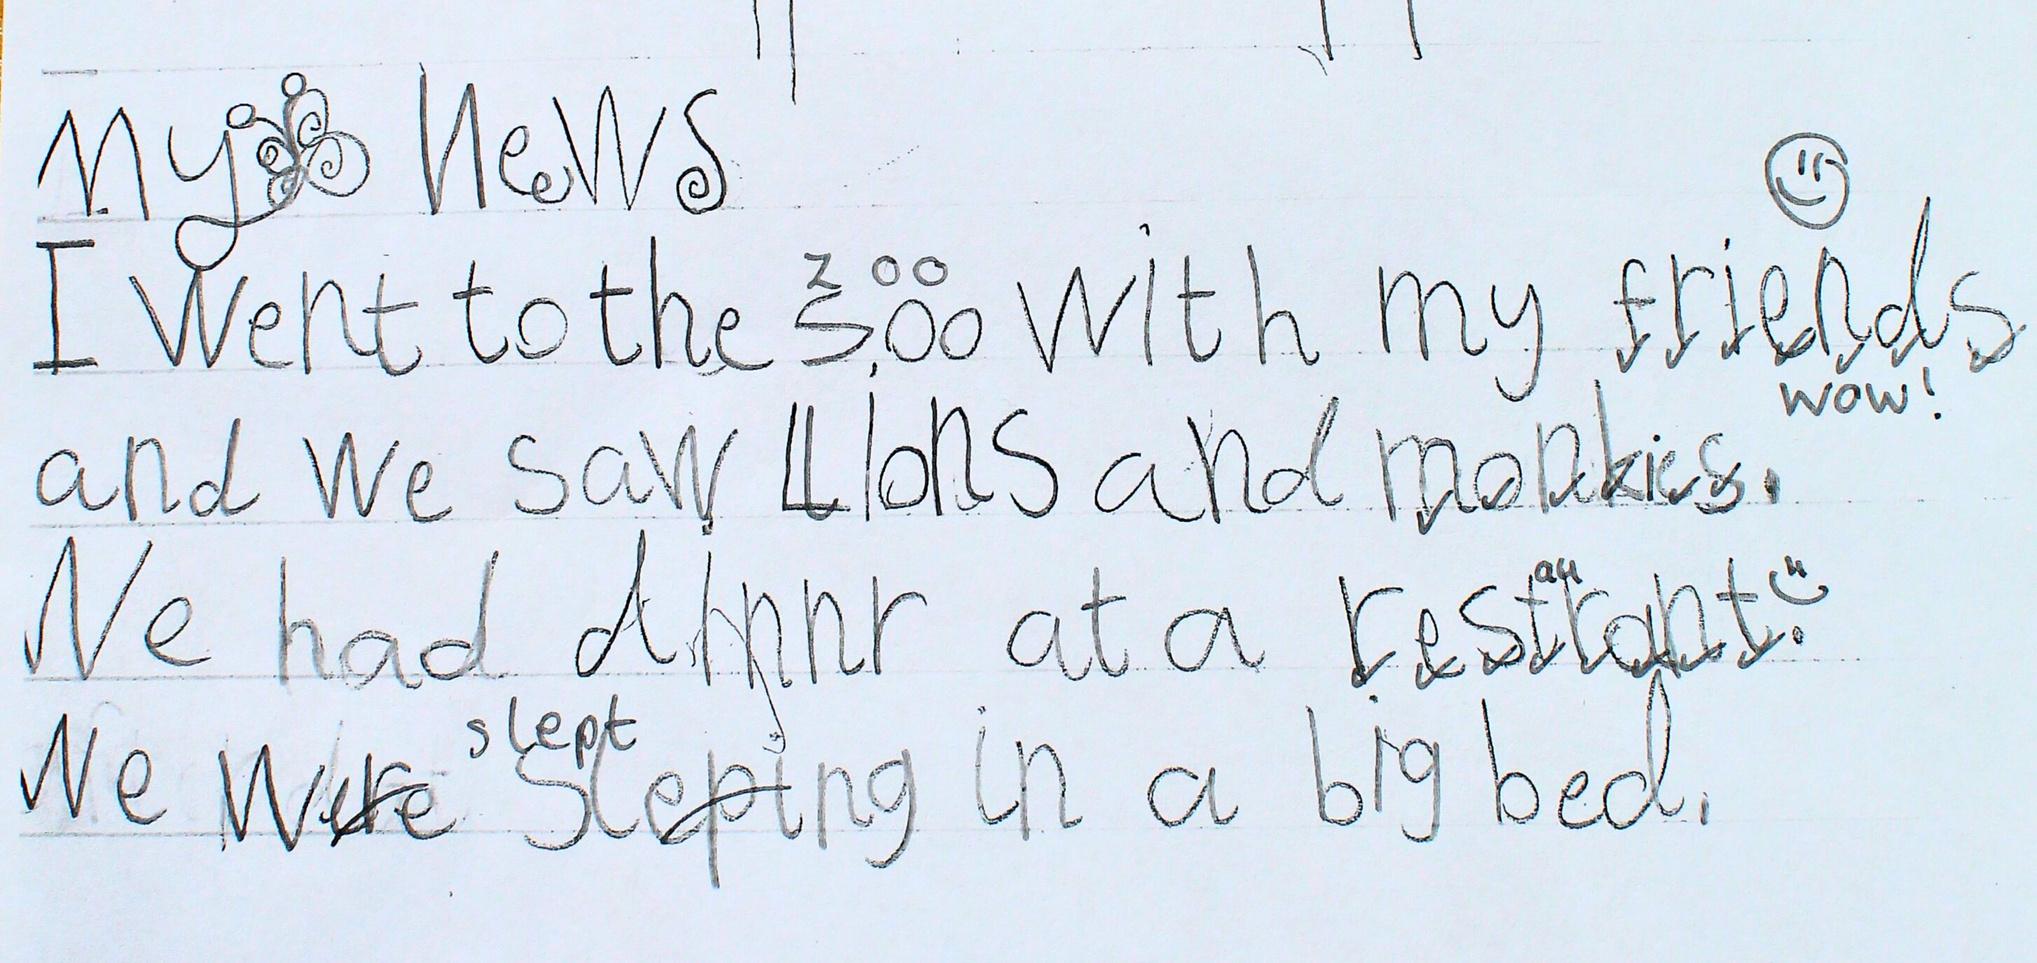 My News
I went to the zoo zoo with my friends
wow!
and we saw Llons and monkies.
We had dinnr at a restrant.
au
slept
We were sleping in a big bed.